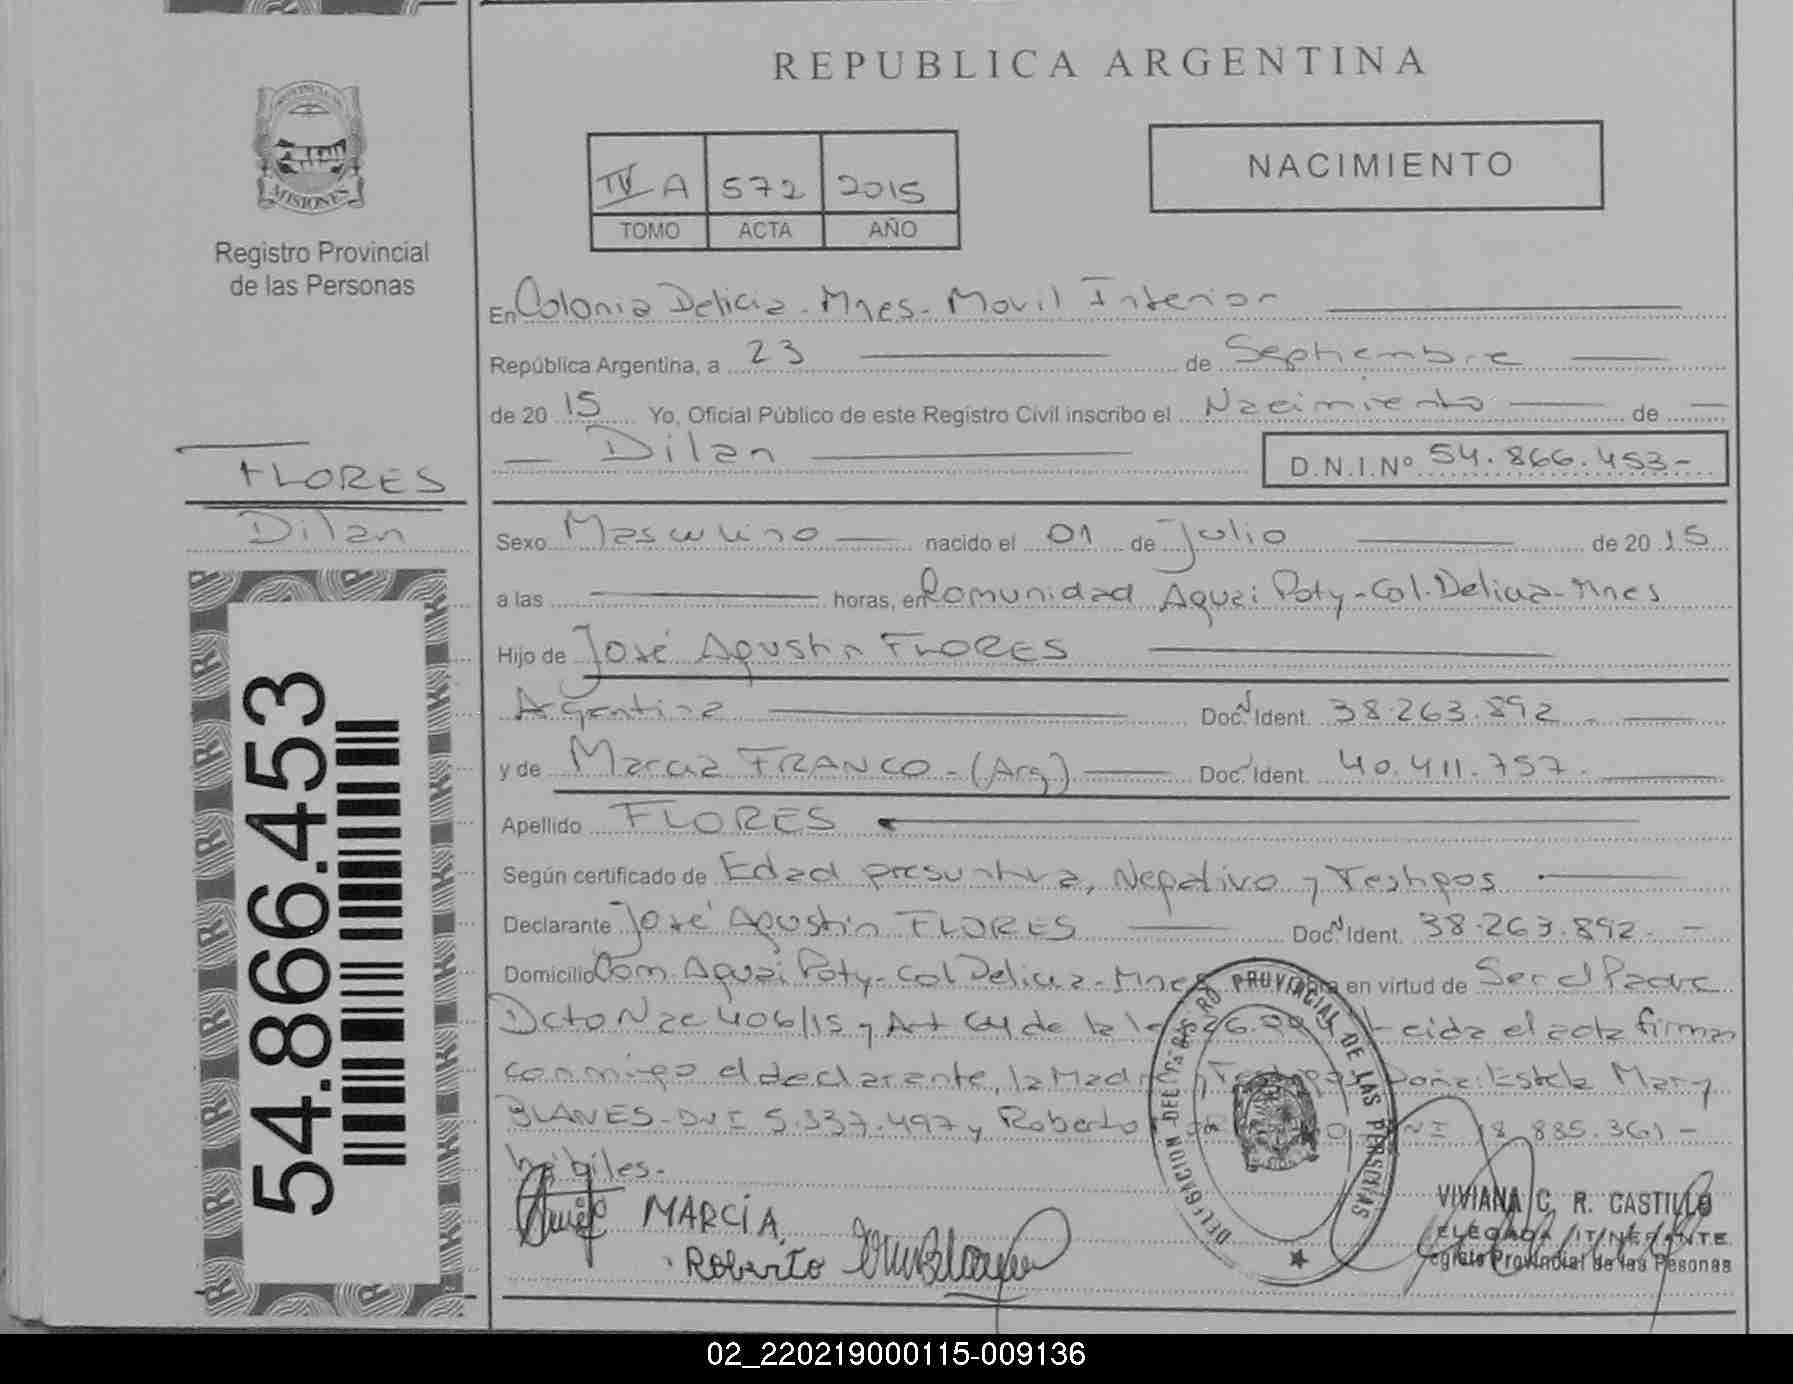 REPUBLICA ARGENTINA
MISIONES
Registro Provincial
de las Personas
IV A 572 2015
TOMO ACTA AÑO
NACIMIENTO
En Colonia Delicia - Mnes - Movil Interior
República Argentina, a 23 de Septiembre
de 20 15 Yo, Oficial Público de este Registro Civil inscribo el Nacimiento de
Dilan
D.N.I.Nº 54.866.453-
FLORES
Dilan
54.866.453
Sexo Masculino nacido el 01 de Julio de 20 15
a las horas, en Comunidad Aguai Poty - Col. Delicia - Mnes
Hijo de José Agustin FLORES
Argentina Doc. N Ident. 38.263.892
y de Marcia FRANCO - (Arg) Doc. N Ident. 40.411.757.
Apellido FLORES
Según certificado de Edad presuntiva, Negativo y Testigos
Declarante José Agustin FLORES Doc N Ident. 38.263.892.-
Domicilio Com. Aguai Poty - Col Delicia - Mnes en virtud de Ser el Padre
Dcto Nac 406/15 y Art 64 de la el acta firman
conmigo el declarante, la Madre y Testigos Doña: Estela Mary
BLANES - DNI 5.337.497 y Roberto 18.835.361 -
hábiles.-
DELEGACION DEL REGISTRO PROVINCIAL DE LAS PERSONAS
MARCIA
Roberto
VIVIANA C. R. CASTILLO
ELEGADA ITINERANTE
egistro Provincial de las Pesonas
02_220219000115-009136